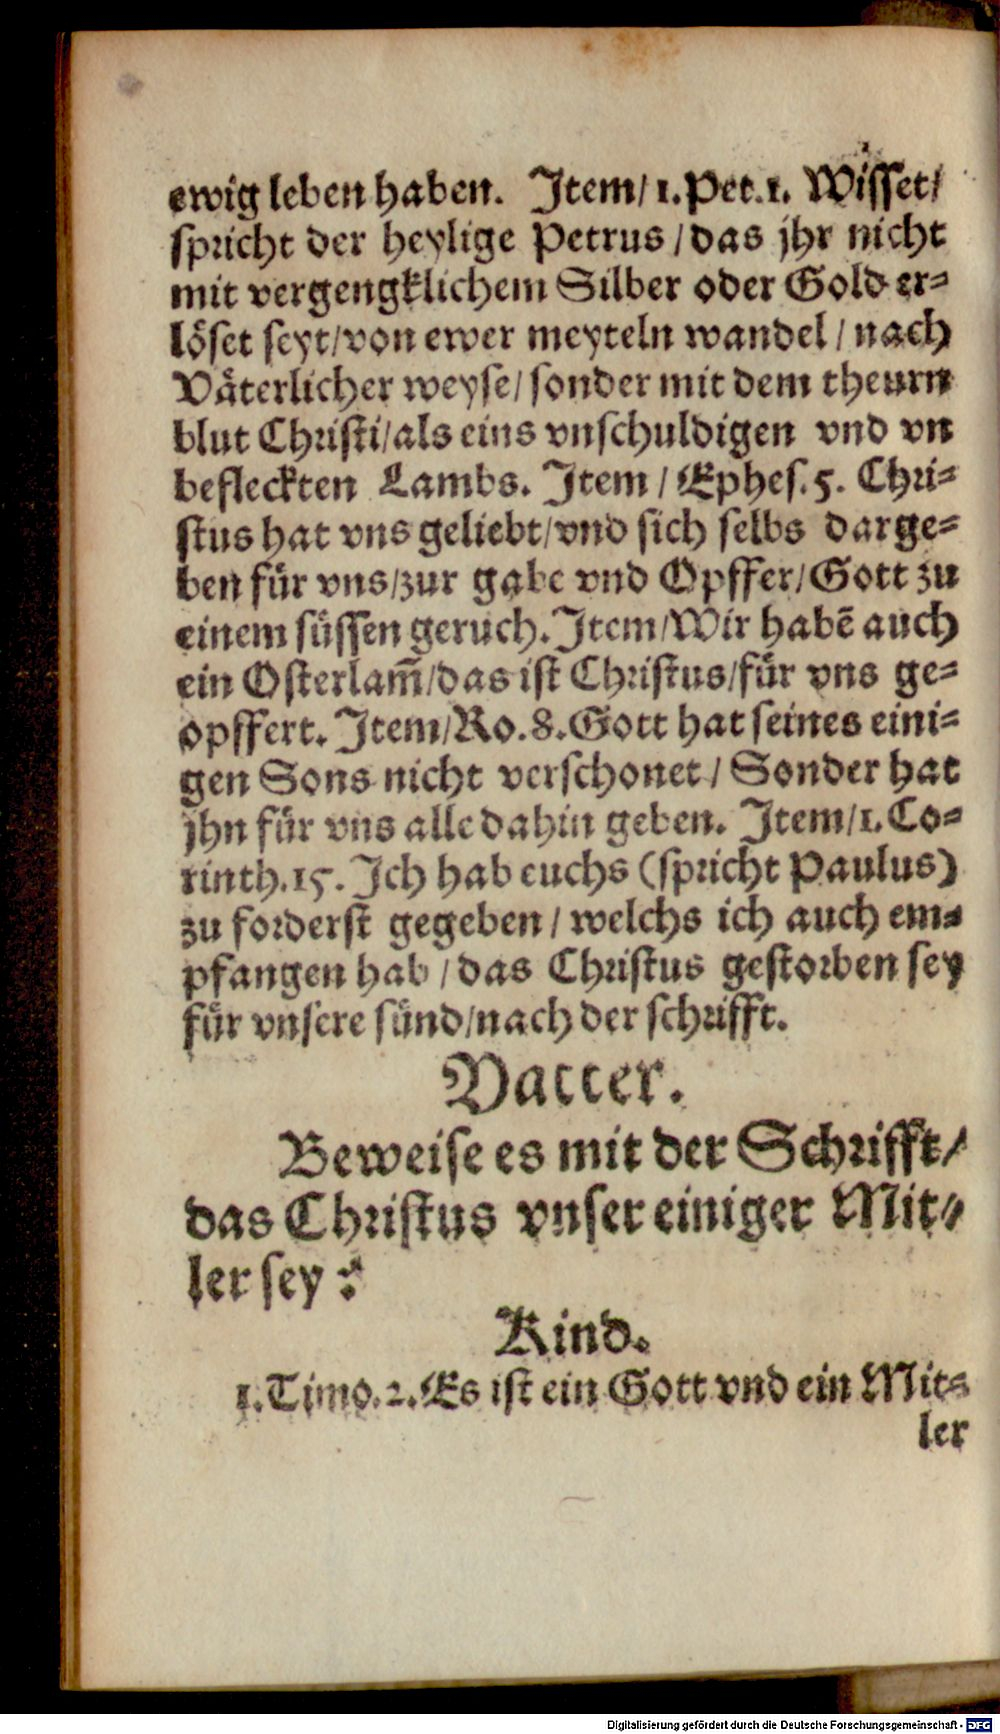 ewig leben haben. Item/ 1. Pet. 1. Wisset/
spricht der heylige Petrus / das jhr nicht
mit vergengklichem Silber oder Gold er-
löset seyt/ von ewer meyteln wandel / nach
Väterlicher weyse/ sonder mit dem theurn
blut Christi/ als eins vnschuldigen vnd vn
befleckten Lambs. Item / Ephes. 5. Chri-
stus hat vns geliebt/ vnd sich selbs darge-
ben für vns/ zur gabe vnd Opffer/ Gott zu
einem süssen geruch. Item/ Wir habē auch
ein Osterlam̄/ das ist Christus/ für vns ge-
opffert. Item/ Ro. 8. Gott hat seines eini-
gen Sons nicht verschonet / Sonder hat
jhn für vns alle dahin geben. Item/ 1. Co-
rinth. 15. Ich hab euchs (spricht Paulus)
zu forderst gegeben / welchs ich auch em-
pfangen hab / das Christus gestorben sey
für vnsere sünd/ nach der schrifft.
Vatter.
Beweise es mit der Schrifft/
das Christus vnser einiger Mit-
ler sey?
Kind.
1. Timo. 2. Es ist ein Gott vnd ein Mit-
ler
Digitalisierung gefördert durch die Deutsche Forschungsgemeinschaft - DFG